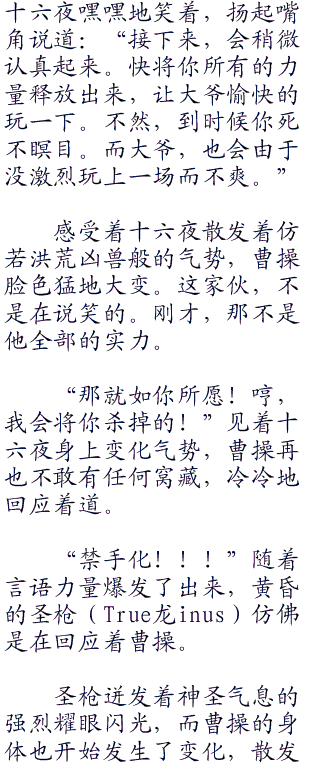 十六夜嘿嘿地笑着，扬起嘴
角说道：“接下来，会稍微
认真起来。快将你所有的力
量释放出来，让大爷愉快的
玩一下。不然，到时候你死
不瞑目。而大爷，也会由于
没激烈玩上一场而不爽。”
感受着十六夜散发着仿
若洪荒凶兽般的气势，曹操
脸色猛地大变。这家伙，不
是在说笑的。刚才，那不是
他全部的实力。
“那就如你所愿！哼，
我会将你杀掉的！”见着十
六夜身上变化气势，曹操再
也不敢有任何窝藏，冷冷地
回应着道。
“禁手化！！！”随着
言语力量爆发了出来，黄昏
的圣枪（True龙inus）仿佛
是在回应着曹操。
圣枪迸发着神圣气息的
强烈耀眼闪光，而曹操的身
体也开始发生了变化，散发